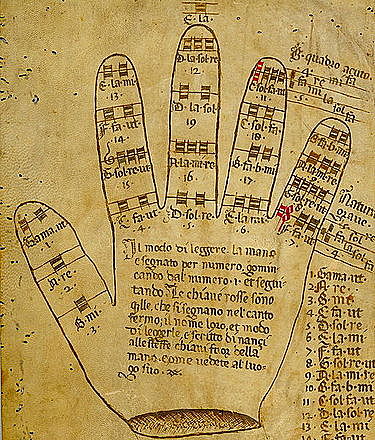 E. la.
D. la. sol. re.
12.
C. sol. fa. ut
11.
E. la. mi.
13.
D. la. sol. re
19
C. sol. fa.
18.
F. fa. ut
14.
G. sol. re. ut
15.
A. la. mi. re
16.
B. fa. b. mi.
17.
C. fa. ut
4.
D. sol. re
5.
E. la. mi
6.
F. fa. ut
7.
Gama. ut.
1.
A. re.
2.
B. mi.
3.
B. quadro acuto.
Natura
grave.
Il modo di leggere la mano
e segnato per numero, comin
cando dal numero .1. et segui
tando. Le chiave rosse sono
qlle, che si segnano nel canto
fermo; il nome loro, et modo
di leggerle, e scritto di nanci
alle stesse chiavi, fuora della
mano, come vedete al luo-
go suo.
1. Gama. ut.
2. A. re.
3. B. mi.
4. C. fa. ut
5. D. sol. re
6. E. la. mi
7. F. fa. ut
8. G. sol. re. ut
9. A. la. mi. re
10. B. fa. b. mi
11. C. sol. fa. ut
12. D. la. sol. re
13. E. la. mi